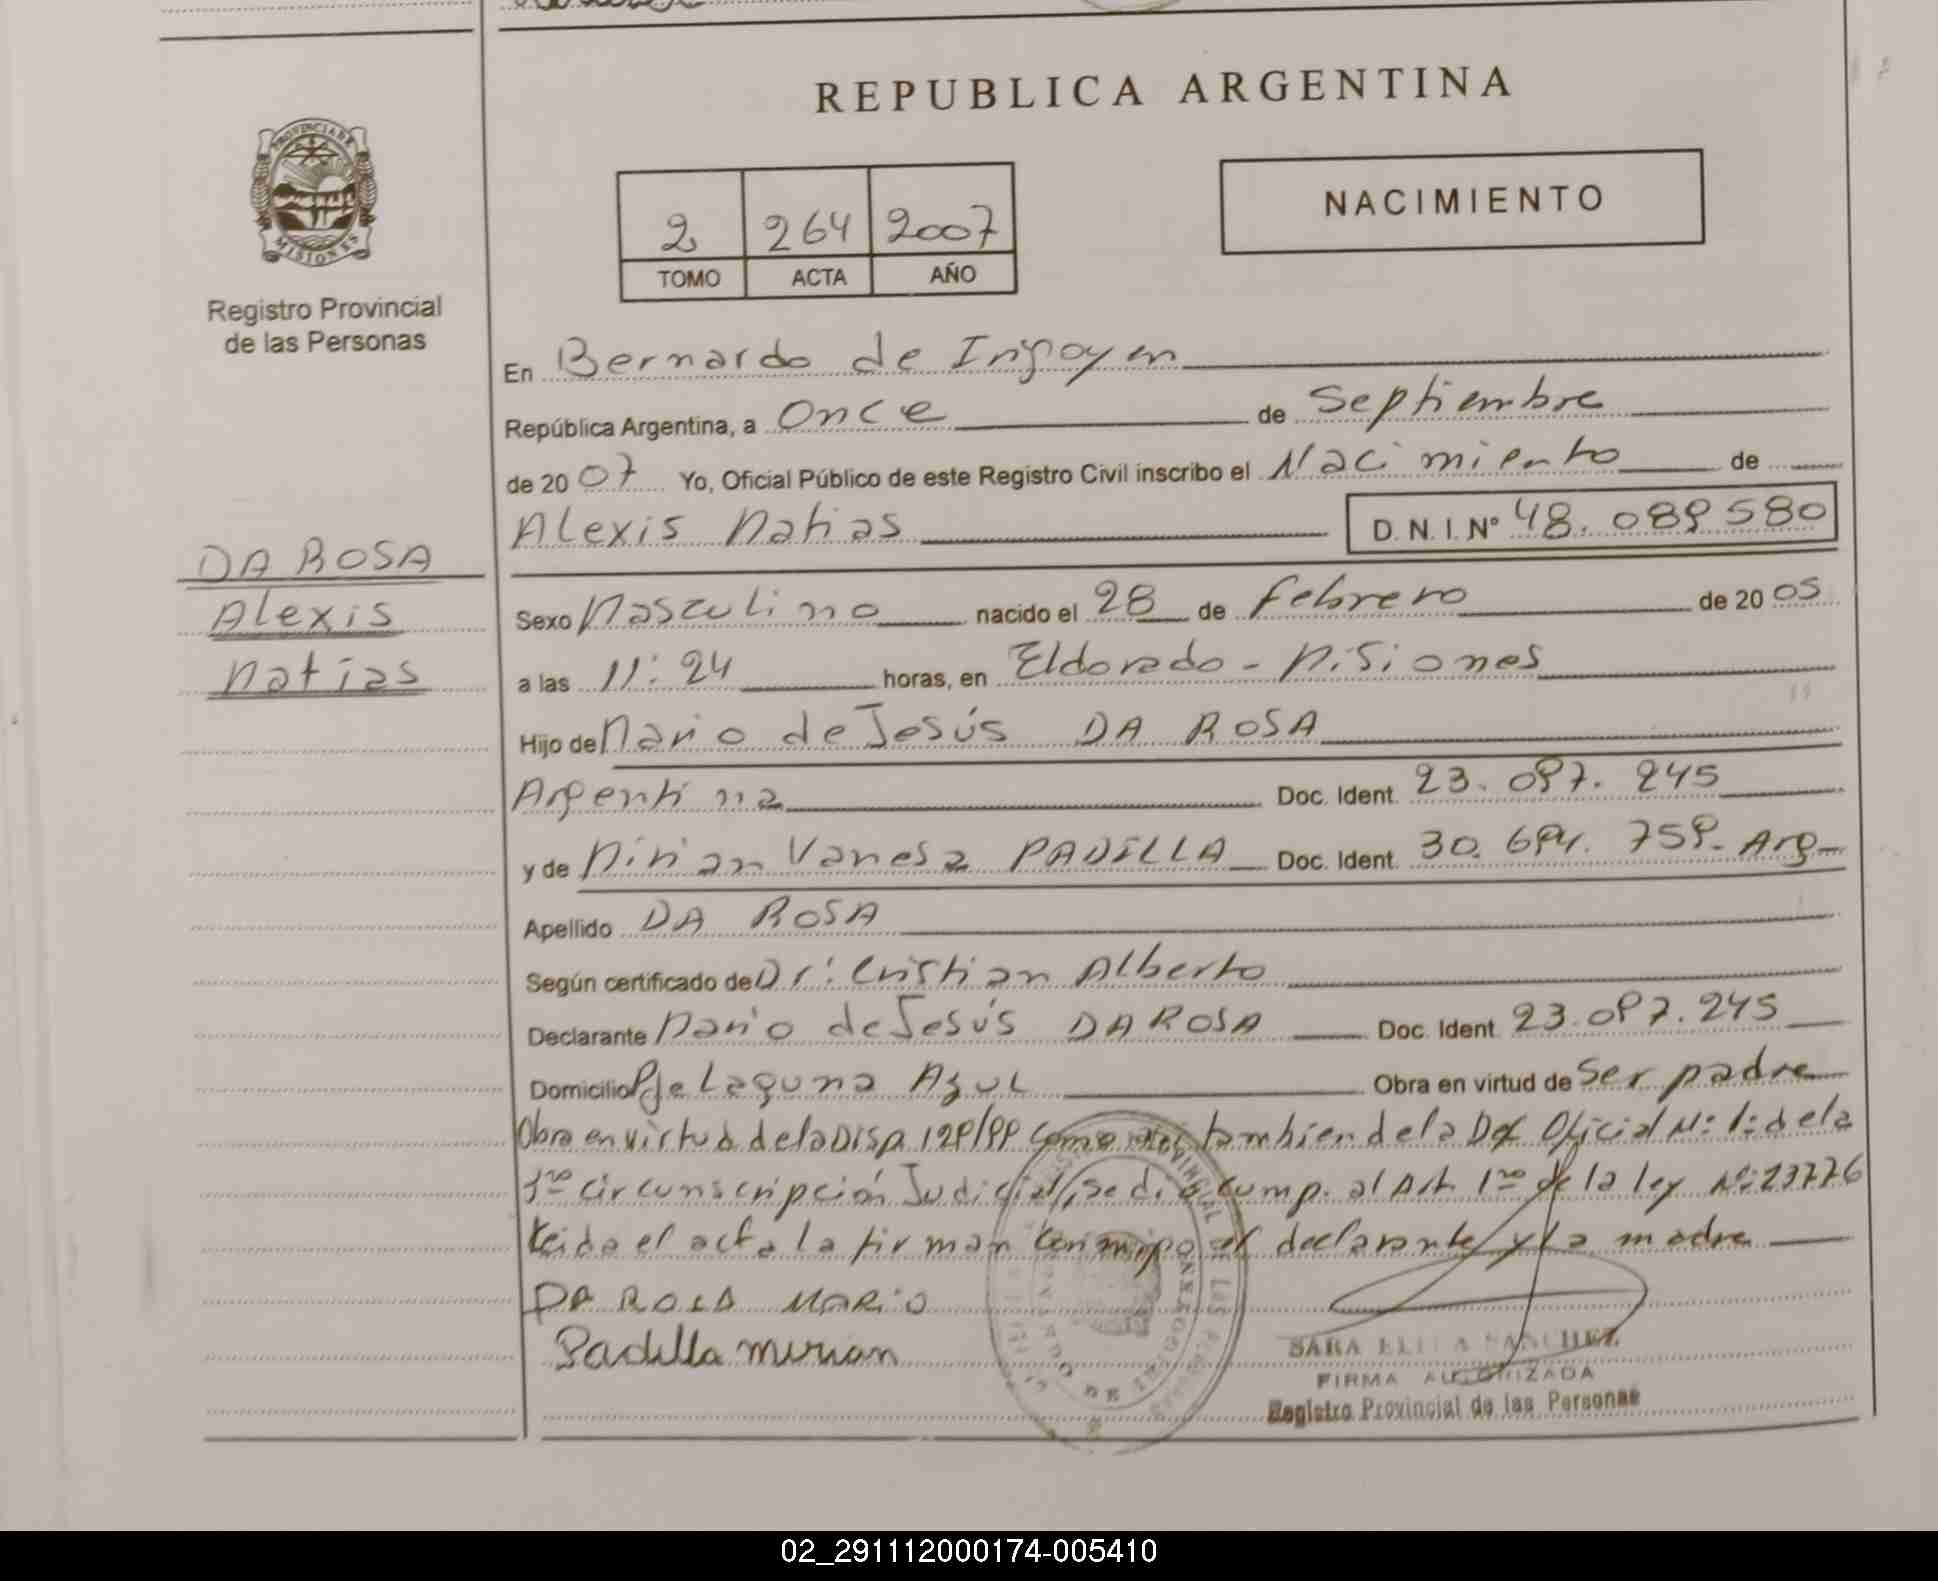 REPUBLICA ARGENTINA
PROVINCIA DE
MISIONES
Registro Provincial
de las Personas
NACIMIENTO
2 264 2007
TOMO ACTA AÑO
En Bernardo de Irigoyen
República Argentina, a Once de Septiembre
de 2007 Yo, Oficial Público de este Registro Civil inscribo el Nacimiento de
Alexis Matias D.N.I.Nº 48.089580
DA ROSA
Alexis
Matias
Sexo Masculino nacido el 28 de Febrero de 2005
a las 11:24 horas, en Eldorado - Misiones
Hijo de Mario de Jesús DA ROSA
Argentina Doc. Ident. 23.097.245
y de Mirian Vanesa PADILLA Doc. Ident. 30.694.759- Arg
Apellido DA ROSA
Según certificado de Dr: Cristian Alberto
Declarante Mario de Jesús DA ROSA Doc. Ident. 23.097.245
Domicilio Pje Laguna Azul Obra en virtud de Ser padre
Obra en virtud de la Disp 129/99 como tambien de la Def Oficial Nº 1: de la
1ra circunscripción Judicial, se dio cump. al Art. 1ro de la ley Nº 23776
Leida el acta la firman conmigo el declarante y la madre
DA ROSA MARIO
Padilla Mirian
SARA SANCHEZ
FIRMA AUTORIZADA
Registro Provincial de las Personas
02_291112000174-005410